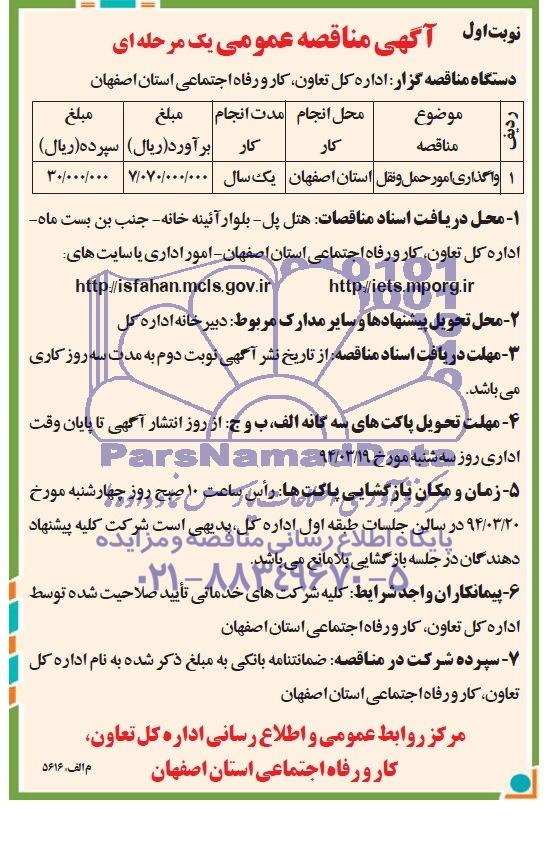 نوبت اول
آگهی مناقصه عمومی یک مرحله ای
دستگاه مناقصه گزار: اداره کل تعاون، کار و رفاه اجتماعی استان اصفهان
ردیف	موضوع مناقصه	محل انجام کار	مدت انجام کار	مبلغ برآورد(ریال)	مبلغ سپرده(ریال)
۱	واگذاری امور حمل و نقل	استان اصفهان	یک سال	۷/۰۷۰/۰۰۰/۰۰۰	۳۰/۰۰۰/۰۰۰
۱- محل دریافت اسناد مناقصات: هتل پل- بلوار آئینه خانه- جنب بن بست ماه-
اداره کل تعاون، کار و رفاه اجتماعی استان اصفهان- امور اداری یا سایت های:
http://iets.mporg.ir http://isfahan.mcls.gov.ir
۲- محل تحویل پیشنهادها و سایر مدارک مربوط: دبیرخانه اداره کل
۳- مهلت دریافت اسناد مناقصه: از تاریخ نشر آگهی نوبت دوم به مدت سه روز کاری
می باشد.
۴- مهلت تحویل پاکت های سه گانه الف، ب و ج: از روز انتشار آگهی تا پایان وقت
اداری روز سه شنبه مورخ ۹۴/۰۳/۱۹
ParsNamadData
۵- زمان و مکان بازگشایی پاکت ها: رأس ساعت ۱۰ صبح روز چهارشنبه مورخ
۹۴/۰۳/۲۰ در سالن جلسات طبقه اول اداره کل، بدیهی است شرکت کلیه پیشنهاد
پایگاه اطلاع رسانی مناقصه و مزایده
دهندگان در جلسه بازگشایی بلامانع می باشد.
۰۲۱-۸۸۳۴۹۶۷۰-۵
۶- پیمانکاران واجد شرایط: کلیه شرکت های خدماتی تأیید صلاحیت شده توسط
اداره کل تعاون، کار و رفاه اجتماعی استان اصفهان
۷- سپرده شرکت در مناقصه: ضمانتنامه بانکی به مبلغ ذکر شده به نام اداره کل
تعاون، کار و رفاه اجتماعی استان اصفهان
مرکز روابط عمومی و اطلاع رسانی اداره کل تعاون،
کار و رفاه اجتماعی استان اصفهان
م الف، ۵۶۱۶